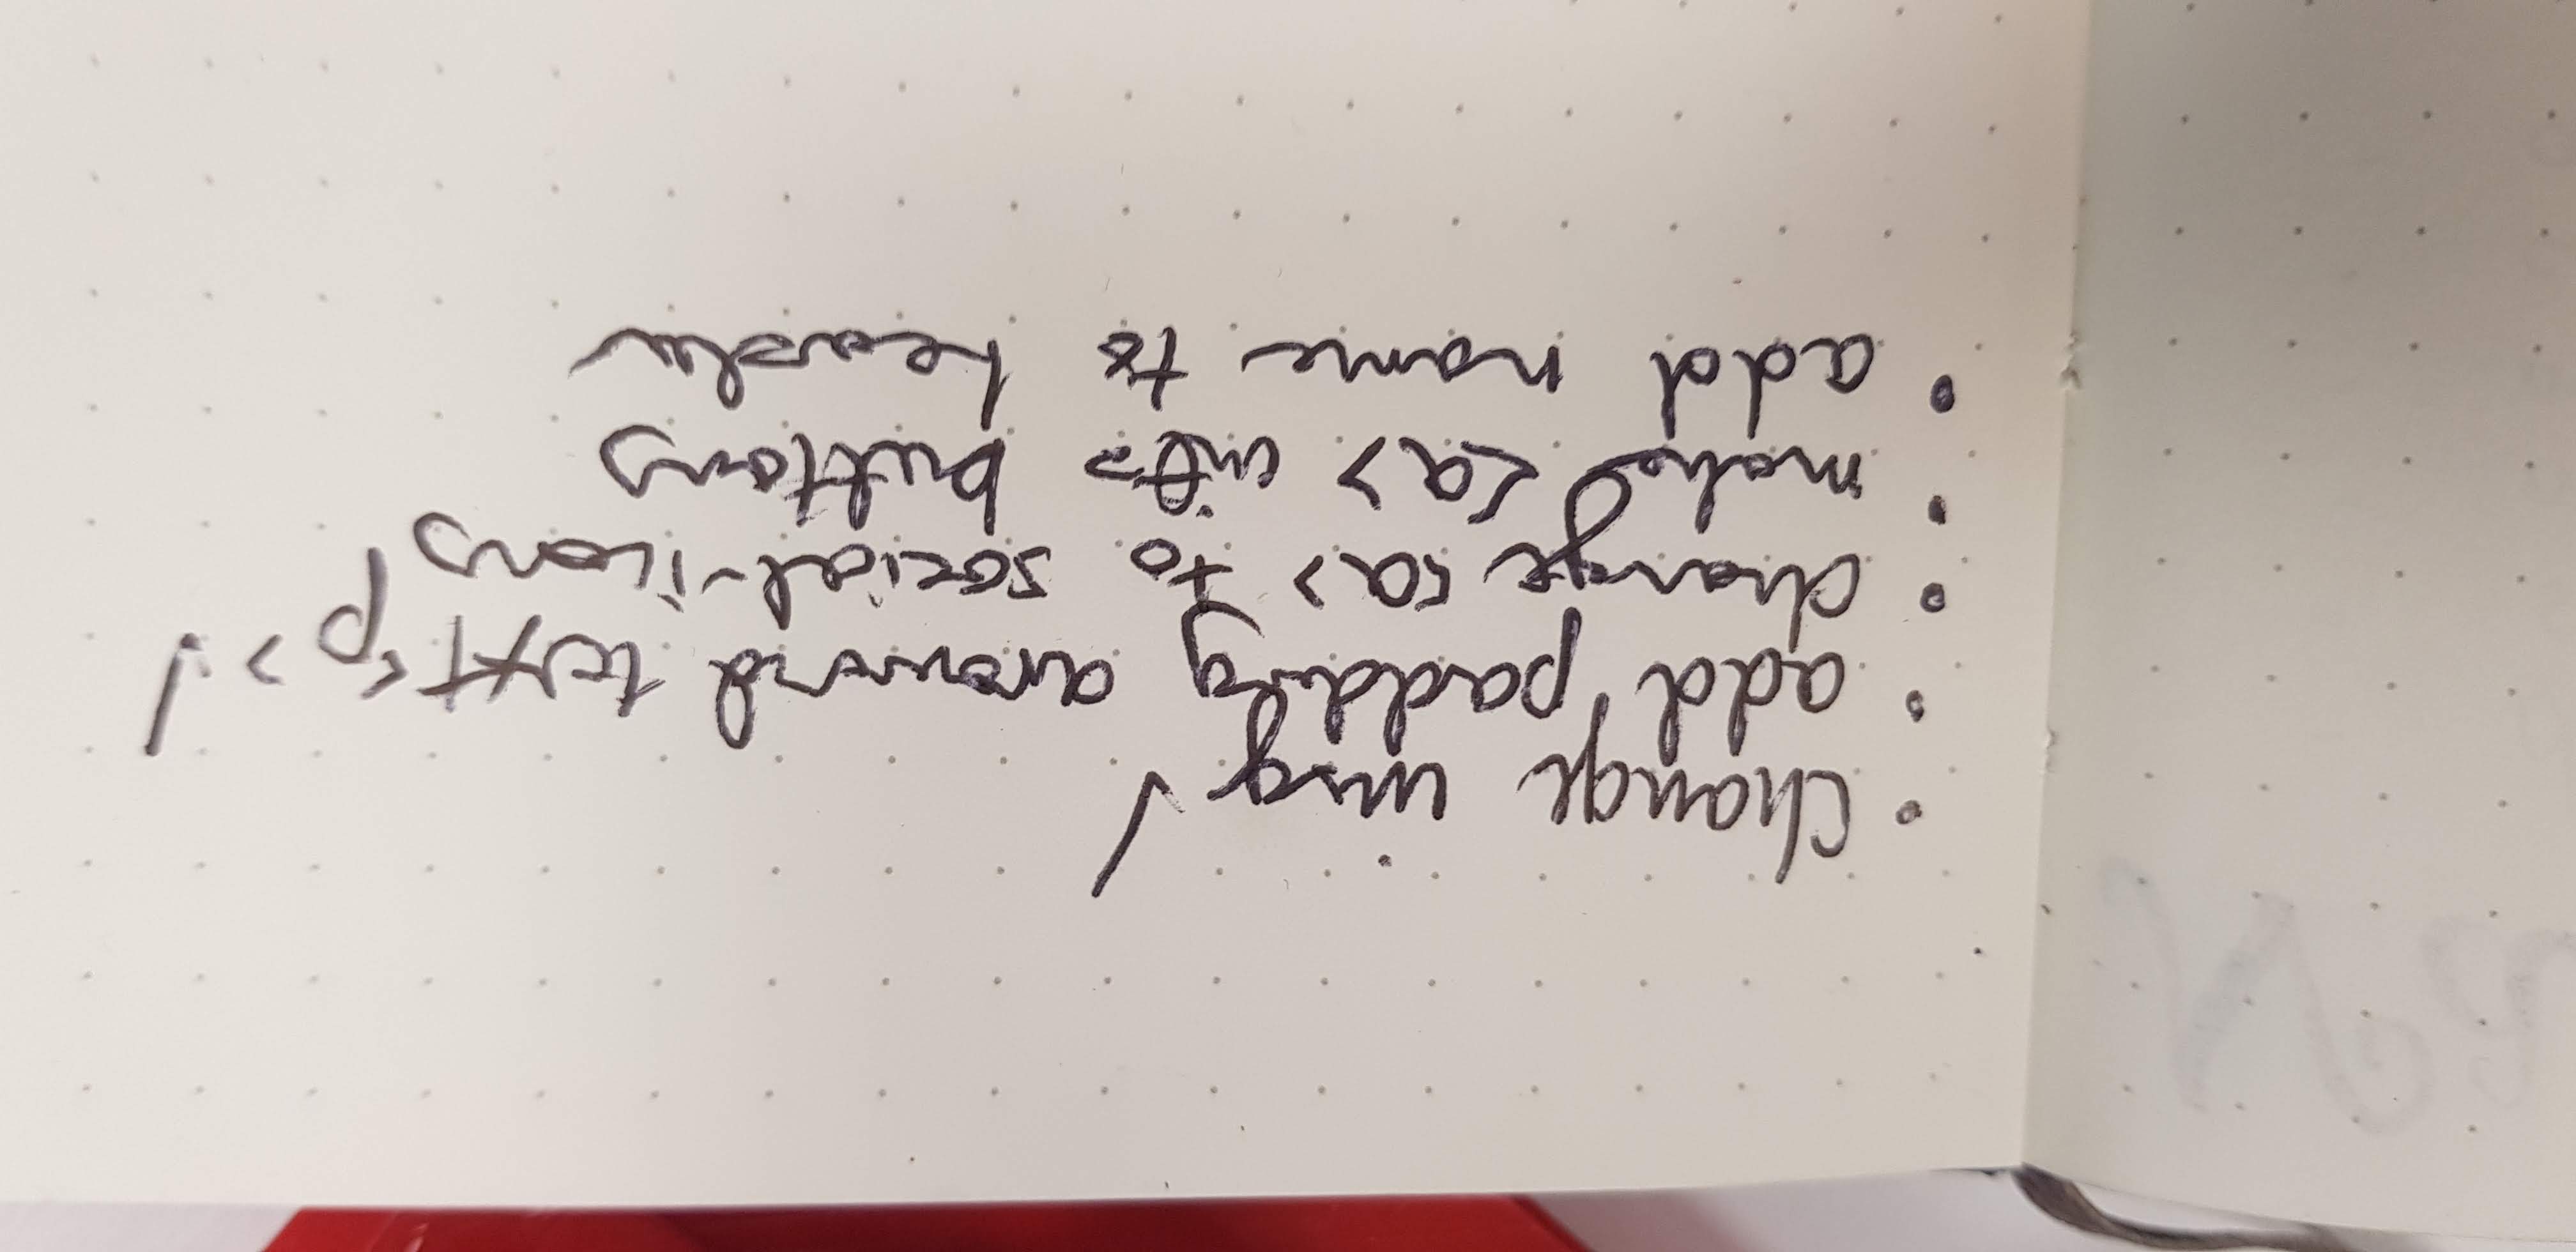 • Change img ✓
• add padding around text <p> ✓
• change <a> to social-icons
• make <a> into buttons
• add name to header